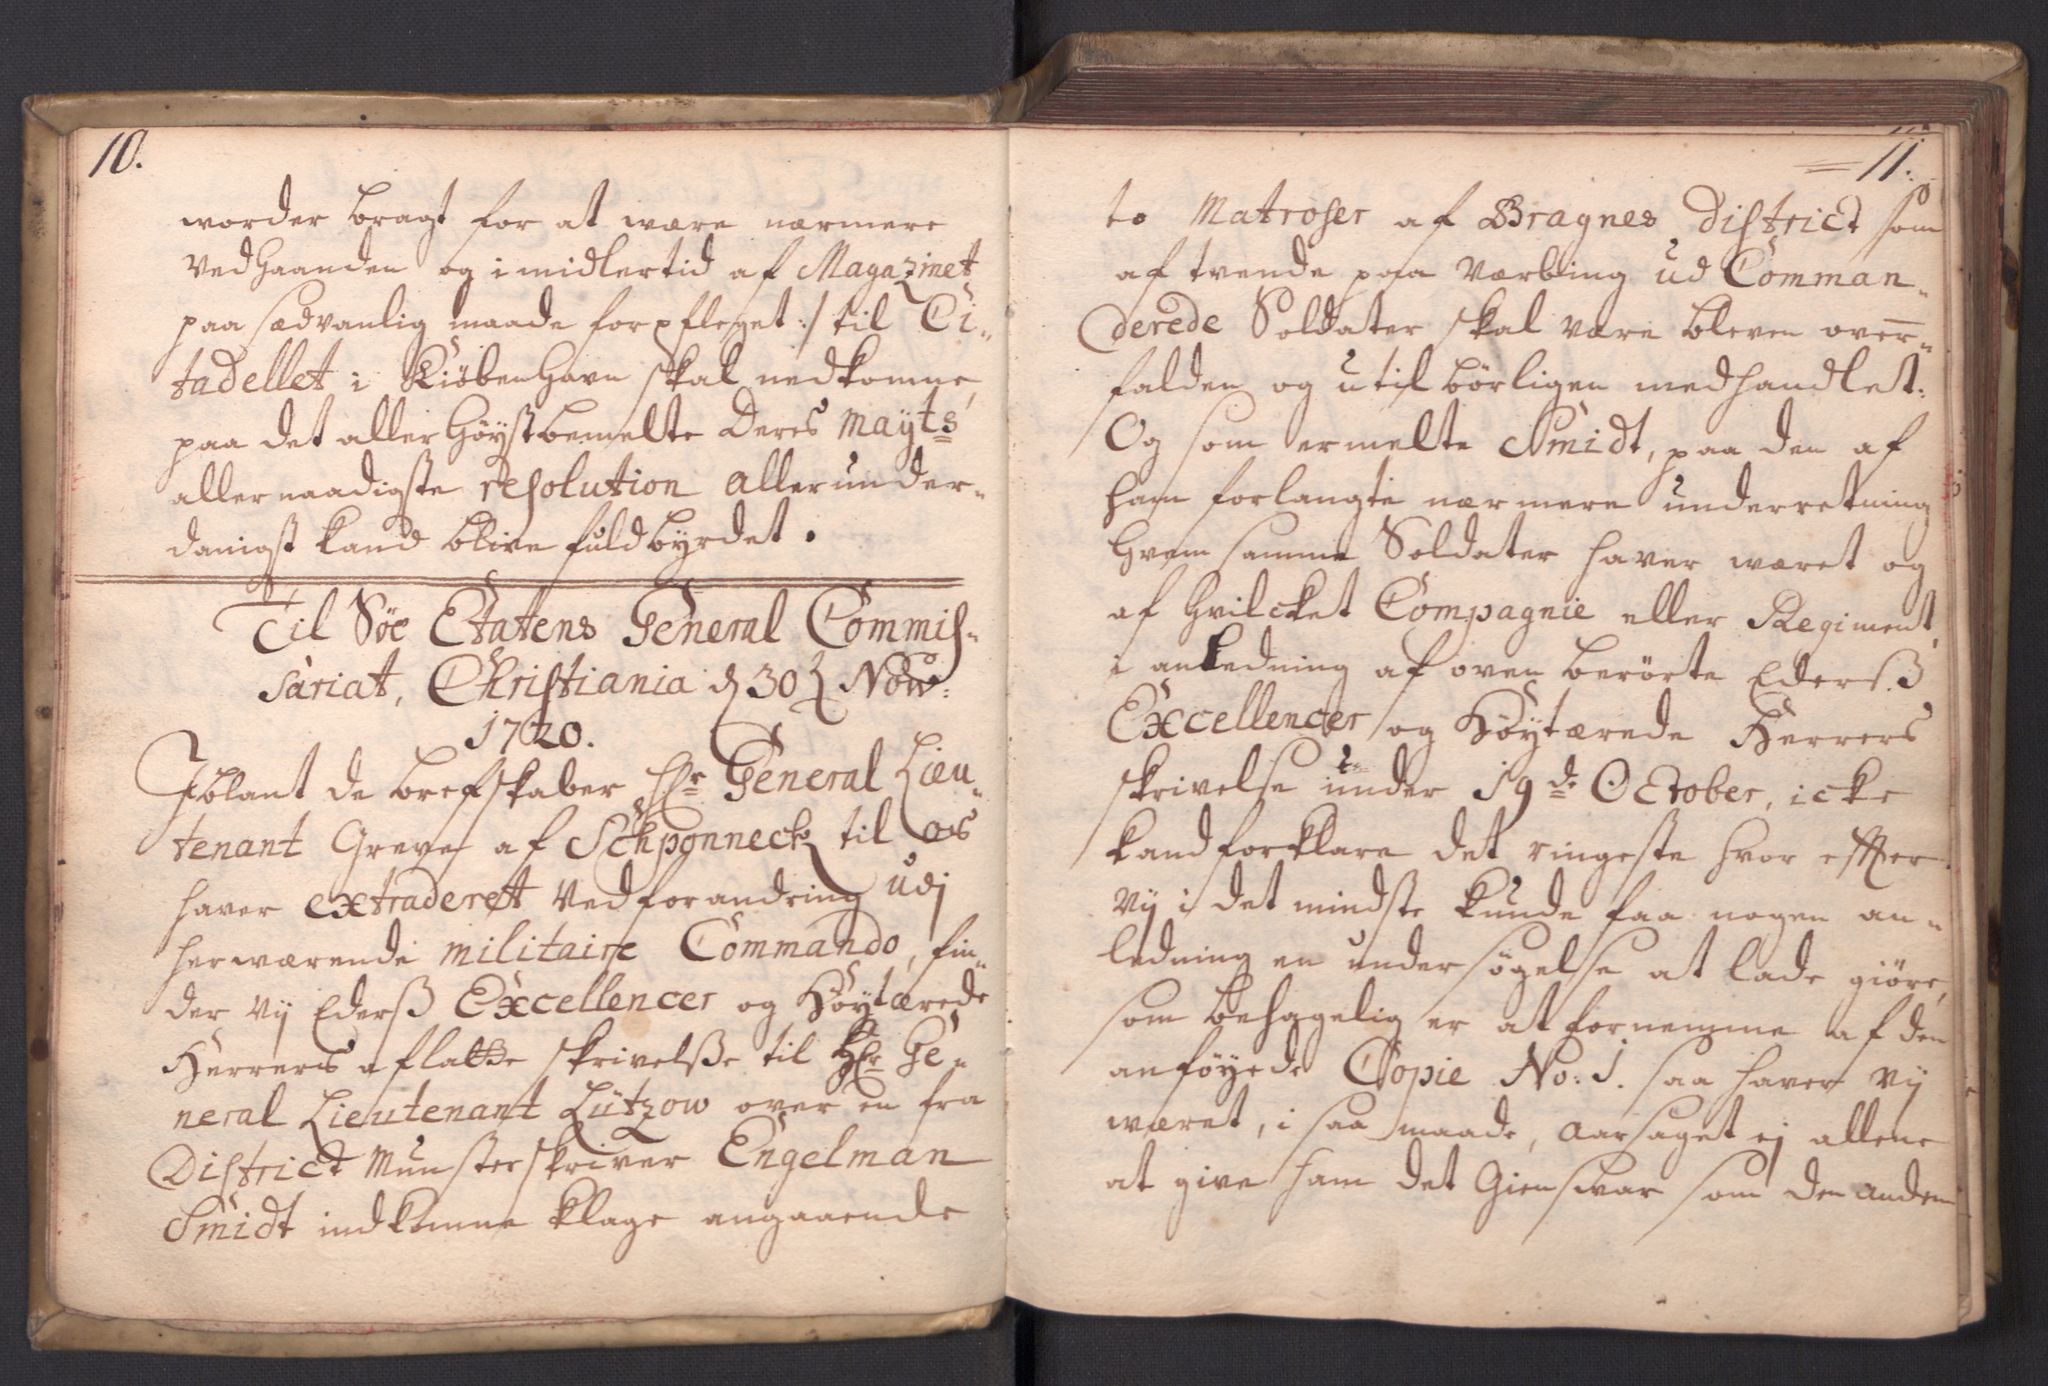 10.
worder bragt for at være nærmere
ved Haanden og imidlertid af Magazinet
paa sædvanlig maade forpfleget :/ til Ci„
tadellet i Kiöbenhavn skal nedkomme,
paa det allerHöystbemelte Deres Mayts
allernaadigste resolution allerunder„
danigst kand blive fuldbyrdet.
Til Söe Etatens General Commis„
sariat, Christiania d 30 Nov:
1720.
Iblant de brefskaber Hr General Lieu„
tenant Greve af Schponneck til os
haver extraderet ved forandring udj
herværende militaire Commando, fin„
der vij Ederß Excellencer og Höytærede
Herrers aflatte skrivelße til Hr Ge„
neral Lieutenant Lützow over en fra
District Munsterskriver Engelman
Smidt indkomne klage angaaende
11.
to Matroser af Bragnes District som
af tvende paa Værbing ud Comman„
derede Soldater skal være bleven over„
falden og utilbörligen medhandlet.
Og som ermelte Smidt, paa den af
ham forlangte nærmere underretning
hvem samme Soldater haver været og
af hvilcket Compagnie eller Regiment,
i anledning af oven berörte Ederß
Excellencer og Höytærede Herrers
skrivelse under 19de October, icke
kand forklare det ringeste hvor efter
vij i det mindste kunde faa nogen an„
ledning en undersögelse at lade giöre,
som behagelig er at fornemme af den
anföyede Copie No: 1. saa haver vij
været, i saa maade, aarsaget ej allene
at give ham det Giensvar som den anden